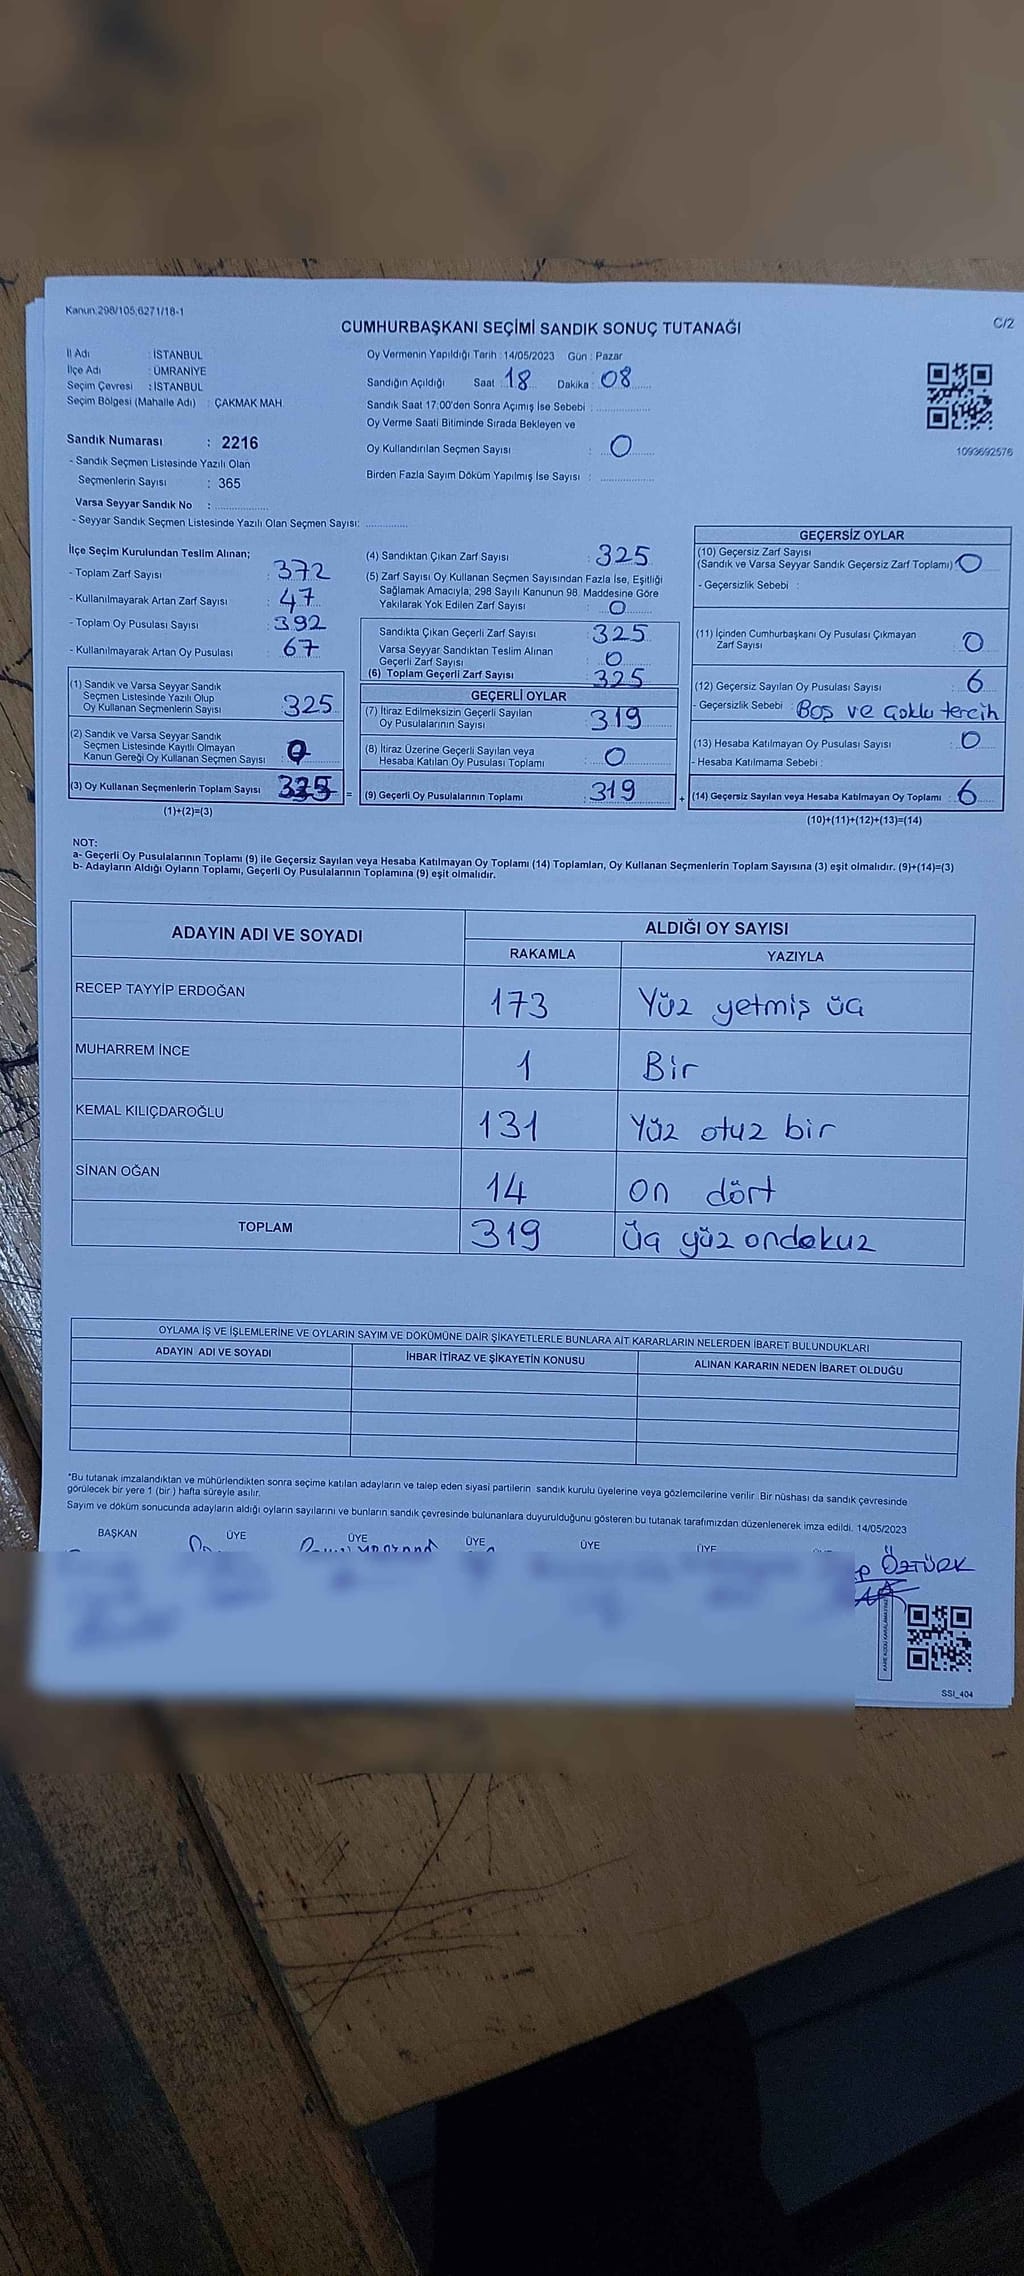 Kanun:298/105,6271/18-1
CUMHURBAŞKANI SEÇİMİ SANDIK SONUÇ TUTANAĞI
C/2
İl Adı : İSTANBUL
İlçe Adı : ÜMRANİYE
Seçim Çevresi : İSTANBUL
Seçim Bölgesi (Mahalle Adı) : ÇAKMAK MAH
Sandık Numarası : 2216
- Sandık Seçmen Listesinde Yazılı Olan
Seçmenlerin Sayısı : 365
Varsa Seyyar Sandık No : ................
- Seyyar Sandık Seçmen Listesinde Yazılı Olan Seçmen Sayısı: ............
Oy Vermenin Yapıldığı Tarih : 14/05/2023 Gün : Pazar
Sandığın Açıldığı Saat : 18 Dakika : 08
Sandık Saat 17:00'den Sonra Açımış İse Sebebi : ................
Oy Verme Saati Bitiminde Sırada Bekleyen ve
Oy Kullandırılan Seçmen Sayısı : 0
Birden Fazla Sayım Döküm Yapılmış İse Sayısı : ................
1093692576
İlçe Seçim Kurulundan Teslim Alınan;
- Toplam Zarf Sayısı : 372
- Kullanılmayarak Artan Zarf Sayısı : 47
- Toplam Oy Pusulası Sayısı : 392
- Kullanılmayarak Artan Oy Pusulası : 67
(1) Sandık ve Varsa Seyyar Sandık
Seçmen Listesinde Yazılı Olup
Oy Kullanan Seçmenlerin Sayısı 325
(2) Sandık ve Varsa Seyyar Sandık
Seçmen Listesinde Kayıtlı Olmayan
Kanun Gereği Oy Kullanan Seçmen Sayısı : 0
(3) Oy Kullanan Seçmenlerin Toplam Sayısı 325 =
(1)+(2)=(3)
(4) Sandıktan Çıkan Zarf Sayısı : 325
(5) Zarf Sayısı Oy Kullanan Seçmen Sayısından Fazla İse, Eşitliği
Sağlamak Amacıyla; 298 Sayılı Kanunun 98. Maddesine Göre
Yakılarak Yok Edilen Zarf Sayısı : 0
Sandıkta Çıkan Geçerli Zarf Sayısı 325
Varsa Seyyar Sandıktan Teslim Alınan
Geçerli Zarf Sayısı 0
(6) Toplam Geçerli Zarf Sayısı 325
GEÇERLİ OYLAR
(7) İtiraz Edilmeksizin Geçerli Sayılan
Oy Pusulalarının Sayısı 319
(8) İtiraz Üzerine Geçerli Sayılan veya
Hesaba Katılan Oy Pusulası Toplamı : 0
(9) Geçerli Oy Pusulalarının Toplamı : 319 +
GEÇERSİZ OYLAR
(10) Geçersiz Zarf Sayısı
(Sandık ve Varsa Seyyar Sandık Geçersiz Zarf Toplamı) : 0
- Geçersizlik Sebebi :
(11) İçinden Cumhurbaşkanı Oy Pusulası Çıkmayan
Zarf Sayısı 0
(12) Geçersiz Sayılan Oy Pusulası Sayısı : 6
- Geçersizlik Sebebi : Boş ve Çoklu tercih
(13) Hesaba Katılmayan Oy Pusulası Sayısı : 0
- Hesaba Katılmama Sebebi :
(14) Geçersiz Sayılan veya Hesaba Katılmayan Oy Toplamı : 6
(10)+(11)+(12)+(13)=(14)
NOT:
a- Geçerli Oy Pusulalarının Toplamı (9) ile Geçersiz Sayılan veya Hesaba Katılmayan Oy Toplamı (14) Toplamları, Oy Kullanan Seçmenlerin Toplam Sayısına (3) eşit olmalıdır. (9)+(14)=(3)
b- Adayların Aldığı Oyların Toplamı, Geçerli Oy Pusulalarının Toplamına (9) eşit olmalıdır.
ADAYIN ADI VE SOYADI ALDIĞI OY SAYISI
RAKAMLA YAZIYLA
RECEP TAYYİP ERDOĞAN 173 Yüz yetmiş üç
MUHARREM İNCE 1 Bir
KEMAL KILIÇDAROĞLU 131 Yüz otuz bir
SİNAN OĞAN 14 on dört
TOPLAM 319 üç yüz ondokuz
OYLAMA İŞ VE İŞLEMLERİNE VE OYLARIN SAYIM VE DÖKÜMÜNE DAİR ŞİKAYETLERLE BUNLARA AİT KARARLARIN NELERDEN İBARET BULUNDUKLARI
ADAYIN ADI VE SOYADI İHBAR İTİRAZ VE ŞİKAYETİN KONUSU ALINAN KARARIN NEDEN İBARET OLDUĞU
*Bu tutanak imzalandıktan ve mühürlendikten sonra seçime katılan adayların ve talep eden siyasi partilerin sandık kurulu üyelerine veya gözlemcilerine verilir. Bir nüshası da sandık çevresinde
görülecek bir yere 1 (bir ) hafta süreyle asılır.
Sayım ve döküm sonucunda adayların aldığı oyların sayılarını ve bunların sandık çevresinde bulunanlara duyurulduğunu gösteren bu tutanak tarafımızdan düzenlenerek imza edildi. 14/05/2023
BAŞKAN ÜYE ÜYE ÜYE ÜYE ÜYE
ÖZTÜRK
SSI_404